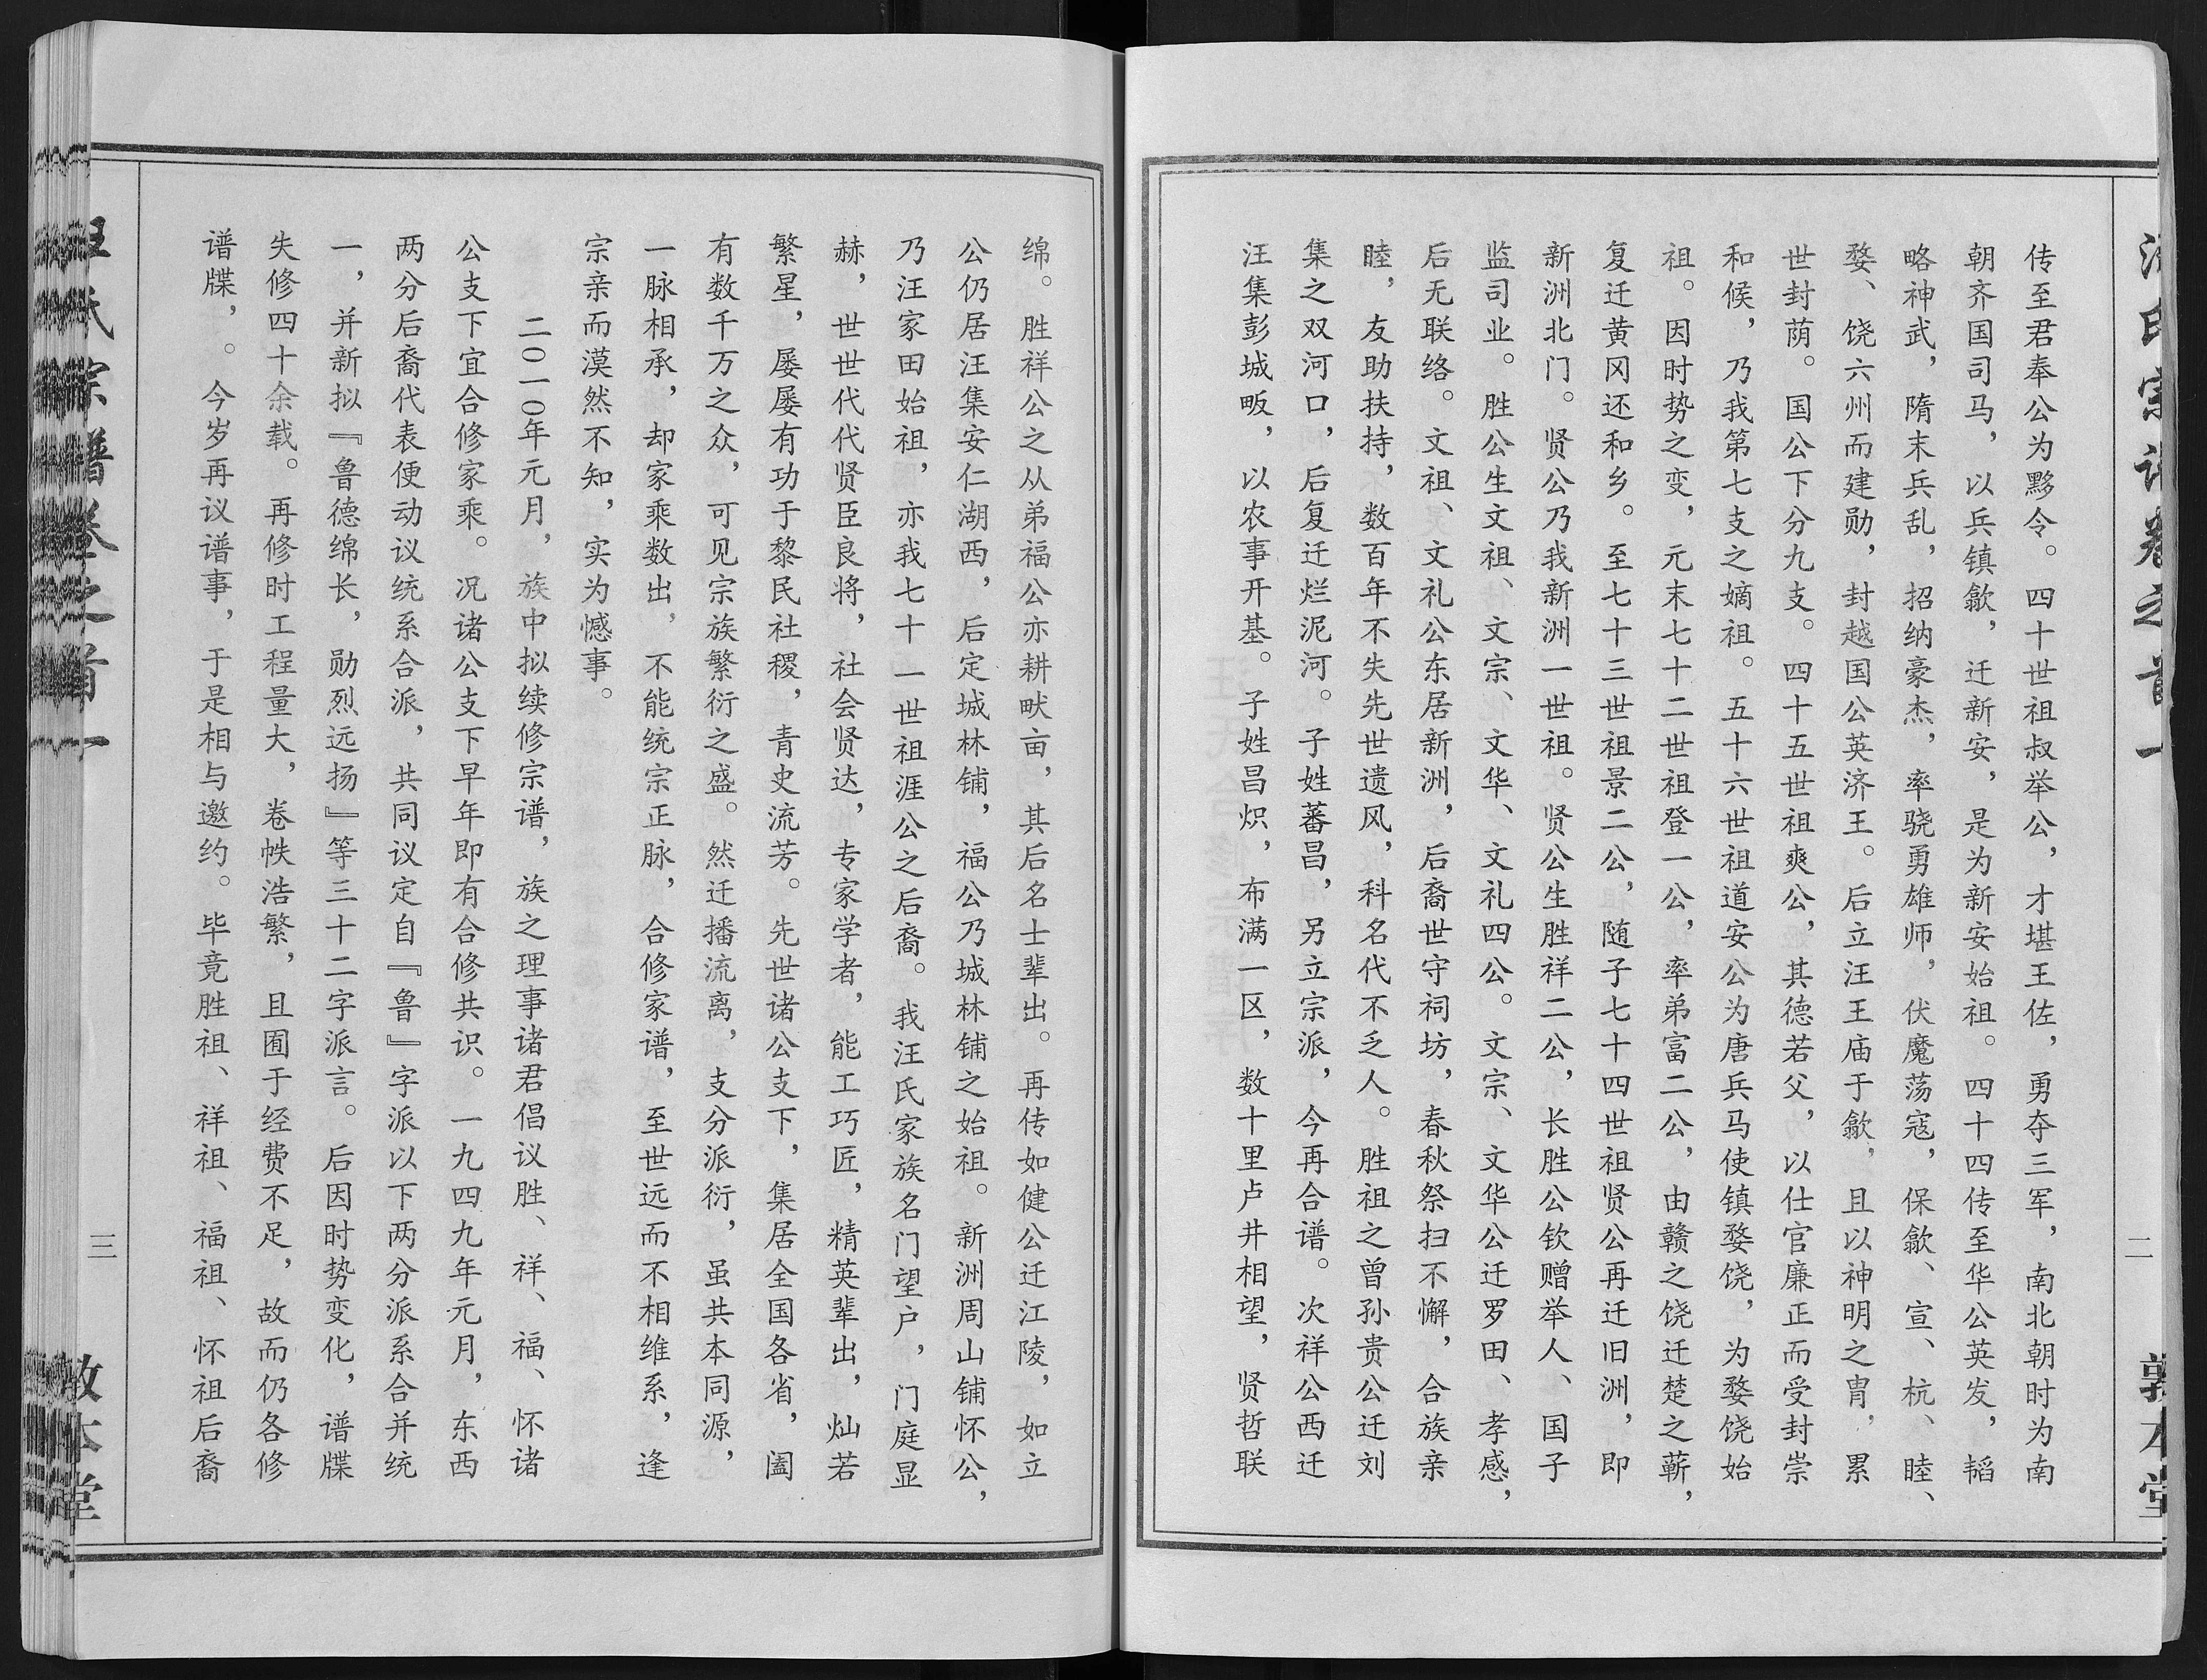 汪氏宗谱卷之首一
二
敦本堂
传至君奉公为黟令。四十世祖叔举公，才堪王佐，勇夺三军，南北朝时为南
朝齐国司马，以兵镇歙，迁新安，是为新安始祖。四十四传至华公英发，韬
略神武，隋末兵乱，招纳豪杰，率骁勇雄师，伏魔荡寇，保歙、宣、杭、睦、
婺、饶六州而建勋，封越国公英济王。后立汪王庙于歙，且以神明之胄，累
世封荫。国公下分九支。四十五世祖爽公，其德若父，以仕官廉正而受封崇
和候，乃我第七支之嫡祖。五十六世祖道安公为唐兵马使镇婺饶，为婺饶始
祖。因时势之变，元末七十二世祖登一公，率弟富二公，由赣之饶迁楚之蕲，
复迁黄冈还和乡。至七十三世祖景二公，随子七十四世祖贤公再迁旧洲，即
新洲北门。贤公乃我新洲一世祖。贤公生胜祥二公，长胜公钦赠举人、国子
监司业。胜公生文祖、文宗、文华、文礼四公。文宗、文华公迁罗田、孝感，
后无联络。文祖、文礼公东居新洲，后裔世守祠坊，春秋祭扫不懈，合族亲
睦，友助扶持，数百年不失先世遗风，科名代不乏人。胜祖之曾孙贵公迁刘
集之双河口，后复迁烂泥河。子姓蕃昌，另立宗派，今再合谱。次祥公西迁
汪集彭城畈，以农事开基。子姓昌炽，布满一区，数十里卢井相望，贤哲联
绵。胜祥公之从弟福公亦耕畎亩，其后名士辈出。再传如健公迁江陵，如立
公仍居汪集安仁湖西，后定城林铺，福公乃城林铺之始祖。新洲周山铺怀公，
乃汪家田始祖，亦我七十一世祖涯公之后裔。我汪氏家族名门望户，门庭显
赫，世世代代贤臣良将，社会贤达，专家学者，能工巧匠，精英辈出，灿若
繁星，屡屡有功于黎民社稷，青史流芳。先世诸公支下，集居全国各省，阖
有数千万之众，可见宗族繁衍之盛。然迁播流离，支分派衍，虽共本同源，
一脉相承，却家乘数出，不能统宗正脉，合修家谱，至世远而不相维系，逢
宗亲而漠然不知，实为憾事。
二〇一〇年元月，族中拟续修宗谱，族之理事诸君倡议胜、祥、福、怀诸
公支下宜合修家乘。况诸公支下早年即有合修共识。一九四九年元月，东西
两分后裔代表便动议统系合派，共同议定自『鲁』字派以下两分派系合并统
一，并新拟『鲁德绵长，勋烈远扬』等三十二字派言。后因时势变化，谱牒
失修四十余载。再修时工程量大，卷帙浩繁，且囿于经费不足，故而仍各修
谱牒，。今岁再议谱事，于是相与邀约。毕竟胜祖、祥祖、福祖、怀祖后裔
汪氏宗谱卷之首一
三
敦本堂